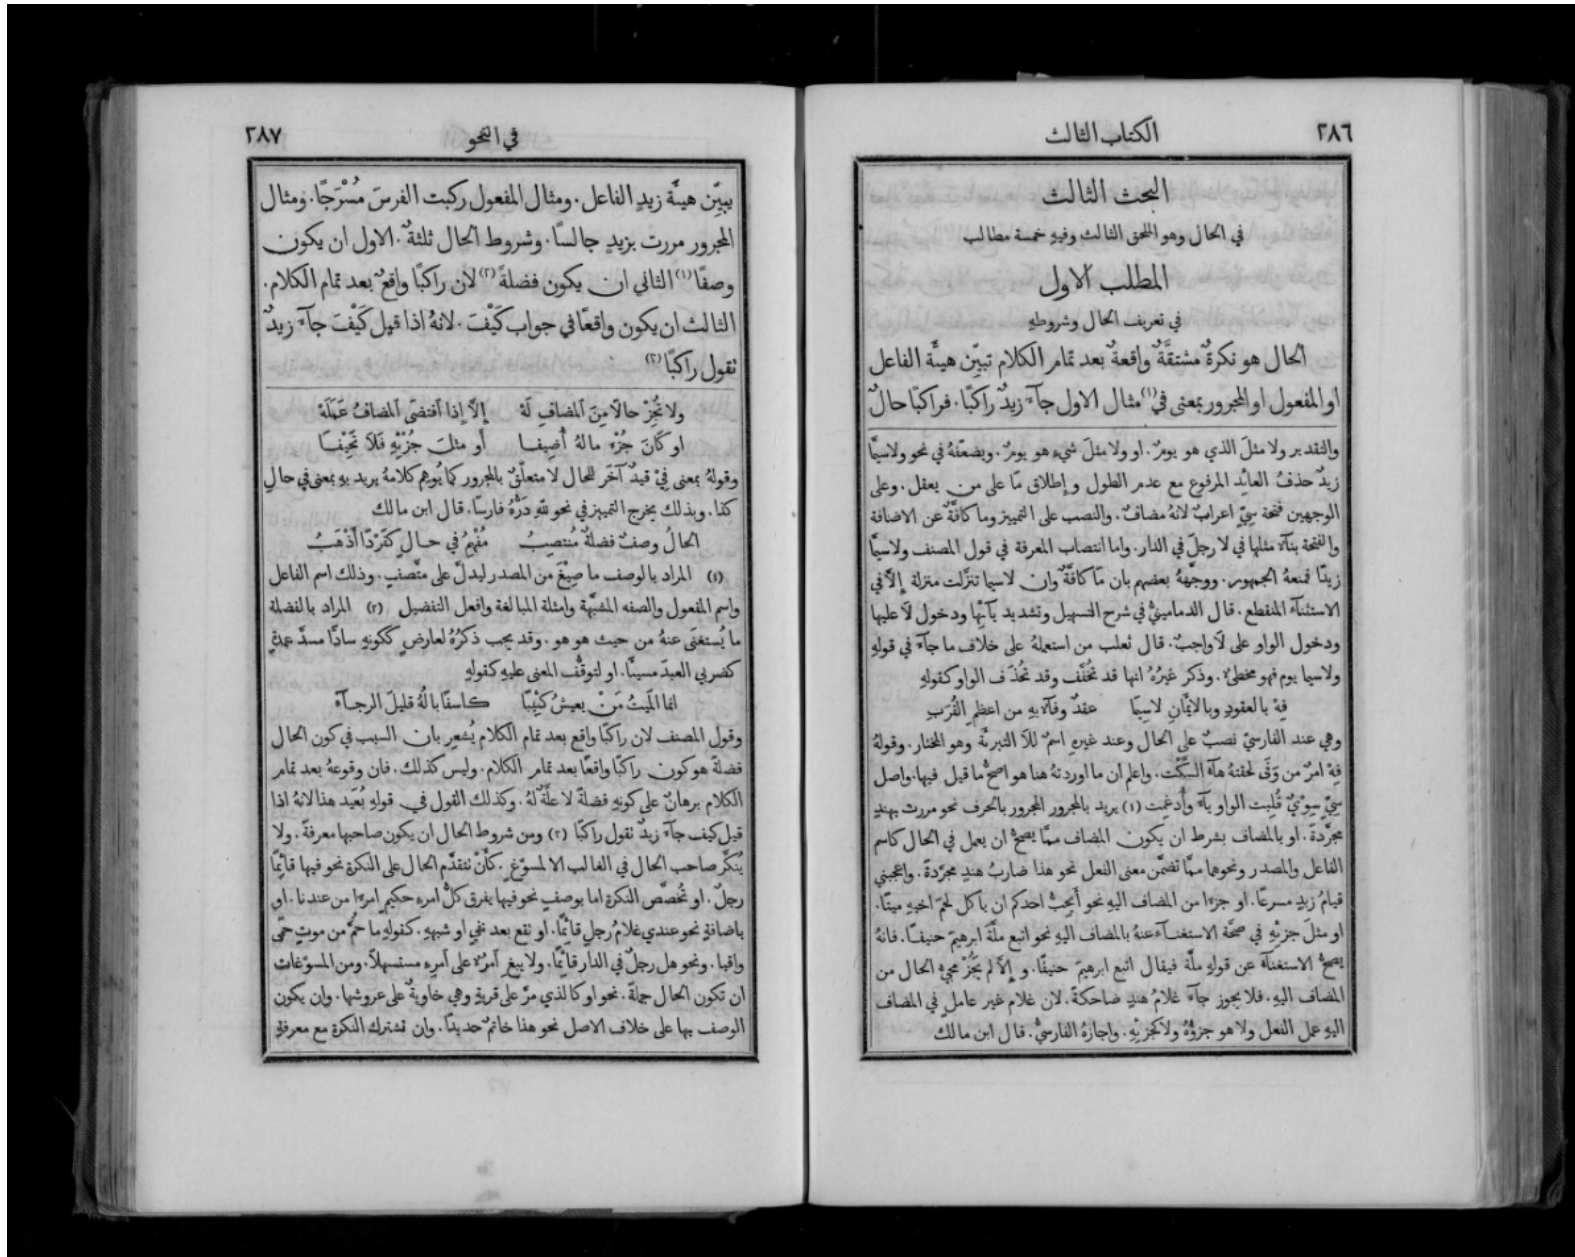 ٢٨٦
الكتاب الثالث
البحث الثالث
في الحال وهو الملحق الثالث وفيهِ خمسة مطالب
المطلب الاول
في تعريف الحال وشروطهِ
الحال هو نكرةٌ مشتقَّةٌ واقعةٌ بعد تمام الكلام تبيِّن هيئَة الفاعل
او المفعول او المجرور بمعنى في (١) مثال الاول جآءَ زيدٌ راكبًا. فراكبًا حالٌ
والتقدير ولا مثلَ الذي هو يومٌ. او ولا مثلَ شيءٍ هو يومٌ. ويضعّفهُ في نحو ولاسيَّما
زيدٌ حذفُ العائد المرفوع مع عدم الطول وإطلاق مَا على من يعقل. وعلى
الوجهين فتحة سِيّ اعرابٌ لانهُ مضافٌ. والنصب على التمييز وما كافَّةٌ عن الاضافة
والفتحة بنآءٌ مثلها في لا رجلَ في الدار. واما انتصاب المعرفة في قول المصنف ولاسيَّما
زيدًا فمنعهُ الجمهور. ووجَّههُ بعضهم بان مَا كافَّةٌ وان لاسيما تنزَّلت منزلة إلَّا في
الاستثنآءَ المنقطع. قال الدمامينيُّ في شرح التسهيل وتشديد يآئِها ودخول لَا عليها
ودخول الواو على لَا واجبٌ. قال ثعلب من استعملهُ على خلاف ما جآءَ في قولهِ
ولاسيما يوم فهو مخطئٌ. وذكر غيرُهُ انها قد تُخفَّف وقد تُحذَف الواو كقولهِ
فِهْ بالعقودِ وبالايمانِ لاسِيَما عقدٌ وفآءٌ بهِ من اعظمِ القُرَبِ
وهي عند الفارسيّ نصبٌ على الحال وعند غيرهِ اسمٌ للَا التبرئَة وهو المختار. وقولهُ
فِهْ امرٌ من وَفَى لحقتهُ هآءُ السَّكْت. واعلم ان ما اوردتهُ هنا هو اصحُّ ما قيل فيها. واصل
سِيّ سِوْيٌ قُلِبت الواو يآءً وأُدغِمت (١) يريد بالمجرور المجرور بالحرف نحو مررت بهندٍ
مجرَّدةً. او بالمضاف بشرط ان يكون المضاف ممَّا يصحُّ ان يعمل في الحال كاسم
الفاعل والمصدر ونحوهما ممَّا تضمَّن معنى الفعل نحو هذا ضاربُ هندٍ مجرَّدةً. واعجبني
قيامُ زيدٍ مسرعًا. او جزءًا من المضاف اليهِ نحو أَيحِبُّ احدكم ان ياكل لحمَ اخيهِ ميتًا.
او مثلَ جزئِهِ في صحَّة الاستغنآءَ عنهُ بالمضاف اليهِ نحو اتبع ملَّةَ ابرهيمَ حنيفًا. فانهُ
يصحُّ الاستغنآءُ عن قولهِ ملَّة فيقال اتبع ابرهيمَ حنيفًا. وإلَّا لم يَجُزْ مجيُ الحال من
المضاف اليهِ. فلا يجوز جآءَ غلامُ هندٍ ضاحكةً. لان غلام غير عاملٍ في المضاف
اليهِ عمل الفعل ولا هو جزؤُهُ ولا كجزئِهِ. واجازهُ الفارسيُّ. قال ابن مالك
في النحو
٢٨٧
يبيّن هيئَة زيدٍ الفاعل. ومثال المفعول ركبت الفرسَ مُسْرَجًا. ومثال
المجرور مررت بزيدٍ جالسًا. وشروط الحال ثلثةٌ. الاول ان يكون
وصفًا (١) الثاني ان يكون فضلةً (٢) لان راكبًا واقعٌ بعد تمام الكلام.
الثالث ان يكون واقعًا في جواب كَيْفَ. لانهُ اذا قيل كَيْفَ جآءَ زيدٌ
تقول راكبًا (٣)
ولا تُجِزْ حالًا مِنَ المضافِ لَهْ إلَّا إِذا اقتضَى المضافُ عَمَلَهْ
او كانَ جُزْءَ ما لهُ أُضِيفا أو مثلَ جُزْئِهِ فَلَا تَحِيْفَا
وقولهُ بمعنى فِيْ قيدٌ آخَر للحال لا متعلّقٌ بالمجرور كما يُوهِم كلامهُ يريد بهِ بمعنى في حالِ
كذا. وبذلك يخرج التمييز في نحو للهِ دَرُّهُ فارسًا. قال ابن مالك
الحالُ وصفٌ فضلةٌ مُنتصِبُ مُفْهِمُ في حالِ كفَرْدًا أَذْهَبُ
(١) المراد بالوصف ما صِيْغَ من المصدر ليدلَّ على متَّصفٍ. وذلك اسم الفاعل
واسم المفعول والصفه المشبَّهة وامثلة المبالغة وافعل التفضيل (٢) المراد بالفضلة
ما يُستغنَى عنهُ من حيث هو هو. وقد يجب ذكرُهُ لعارضٍ ككونهِ سادًّا مسدَّ عمدةٍ
كضربي العبدَ مسيئًا. او لتوقُّف المعنى عليهِ كقولهِ
انما المَيتُ مَنْ يعيشُ كئيبًا كاسفًا بالُهُ قليلَ الرجآءِ
وقول المصنف لان راكبًا واقع بعد تمام الكلام يُشعِر بان السبب في كون الحال
فضلةً هو كون راكبًا واقعًا بعد تمام الكلام. وليس كذلك. فان وقوعهُ بعد تمام
الكلام برهانٌ على كونهِ فضلةً لا علَّةٌ لهُ. وكذلك القول في قولهِ بُعَيد هذا لانهُ اذا
قيل كيف جآءَ زيدٌ تقول راكبًا (٣) ومن شروط الحال ان يكون صاحبها معرفةً. ولا
يُنكَّر صاحب الحال في الغالب الا لمسوّغٍ. كأَنْ تتقدَّم الحال على النكرة نحو فيها قائمًا
رجلٌ. او تُخصَّص النكرة اما بوصفٍ نحو فيها يفرق كلُّ امرٍ حكيمٍ امرًا من عندنا. او
باضافةٍ نحو عندي غلامُ رجلٍ قائمًا. او تقع بعد نفيٍ او شبههِ. كقولهِ ما حُمَّ من موتٍ حمًى
واقيا. ونحو هل رجلٌ في الدار قائمًا. ولا يبغِ امرُؤٌ على امرءٍ مستسهلًا. ومن المسوّغات
ان تكون الحال جملةً. نحو او كالذي مرَّ على قريةٍ وهي خاويةٌ على عروشها. وان يكون
الوصف بها على خلاف الاصل نحو هذا خاتمٌ حديدًا. وان تشترك النكرة مع معرفةٍ